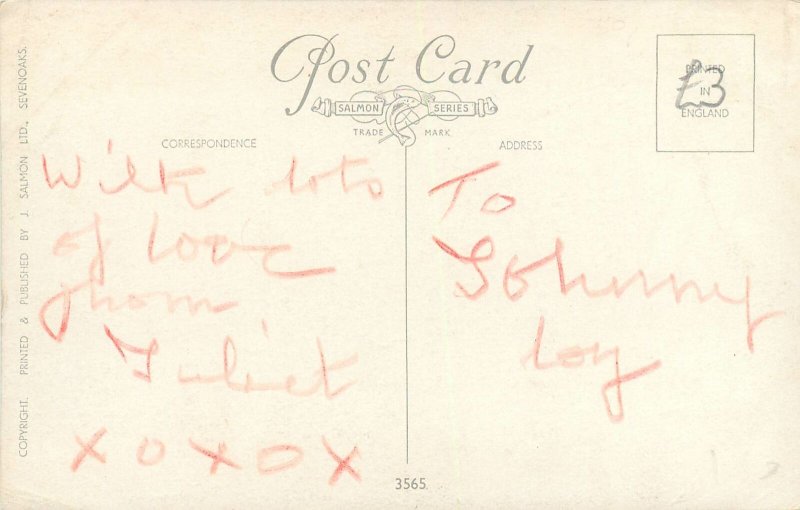 Post Card
SALMON SERIES
TRADE MARK
CORRESPONDENCE
With lots
of love
from
Juliet
XOXOX
ADDRESS
To
Johnny
boy
£3
PRINTED
IN
ENGLAND
COPYRIGHT. PRINTED & PUBLISHED BY J. SALMON LTD., SEVENOAKS.
3565.